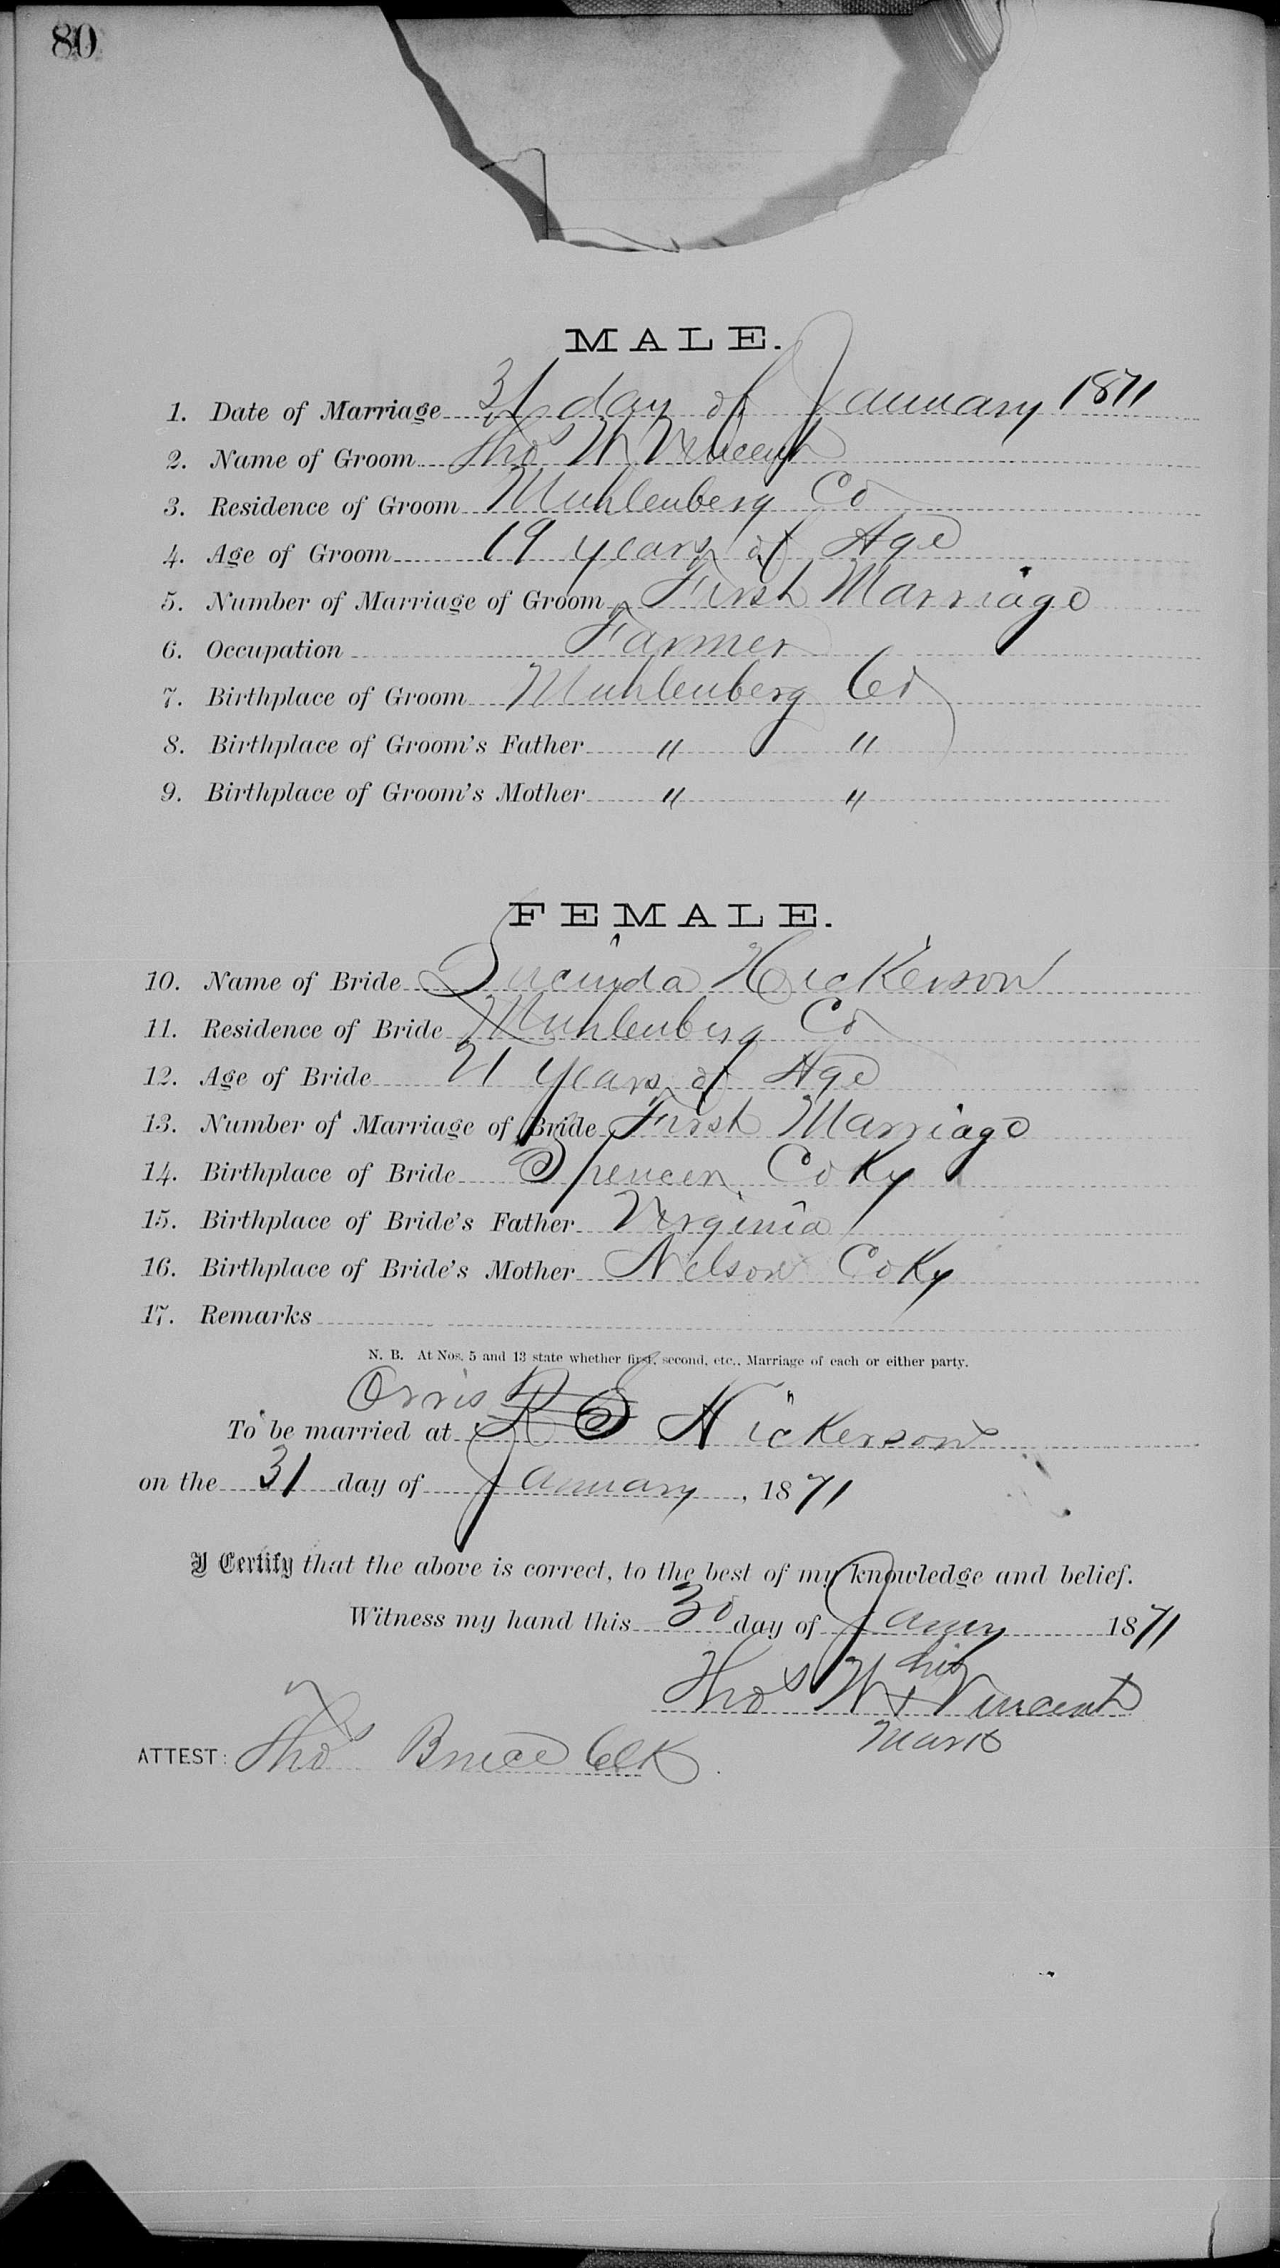 80
MALE.
1. Date of Marriage 31 day of January 1871
2. Name of Groom Thos W Vincent
3. Residence of Groom Muhlenberg Co
4. Age of Groom 19 years of Age
5. Number of Marriage of Groom First Marriage
6. Occupation Farmer
7. Birthplace of Groom Muhlenberg Co
8. Birthplace of Groom's Father " "
9. Birthplace of Groom's Mother " "
FEMALE.
10. Name of Bride Lucinda Nickerson
11. Residence of Bride Muhlenberg Co
12. Age of Bride 21 years of Age
13. Number of Marriage of Bride First Marriage
14. Birthplace of Bride Spencer Co Ky
15. Birthplace of Bride's Father Virginia
16. Birthplace of Bride's Mother Nelson Co Ky
17. Remarks
N. B. At Nos. 5 and 13 state whether first, second, etc., Marriage of each or either party.
Orris
To be married at Nickerson
on the 31 day of January, 1871
I Certify that the above is correct, to the best of my knowledge and belief.
Witness my hand this 30 day of Jany 1871
his
Thos W + Vincent
mark
ATTEST: Thos Bruce Clk